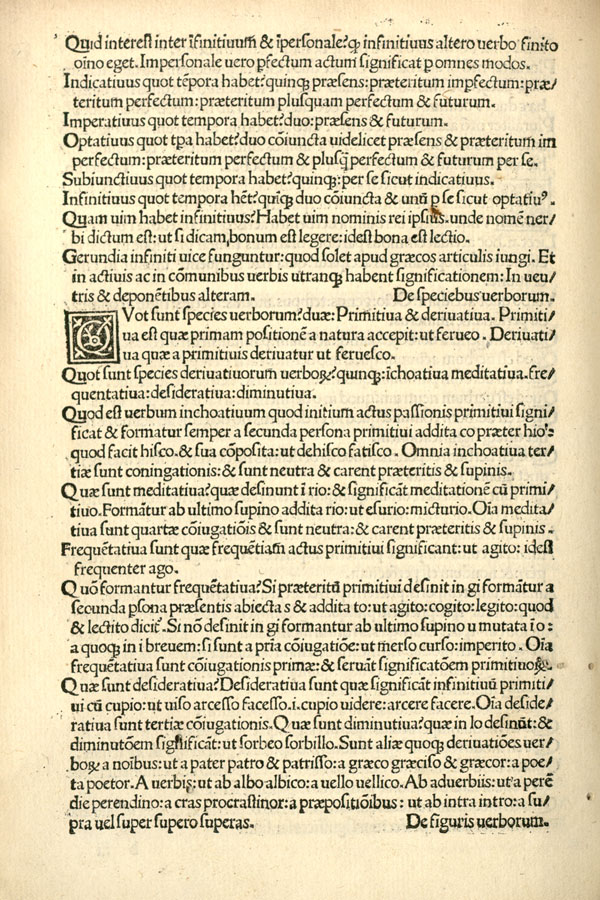 Quid interest inter īfinitiuum & īpersonale?ꝙ infinitiuus altero uerbo finito
oīno eget. Impersonale uero ꝑfectum actum significat ꝑ omnes modos.
Indicatiuus quot tēpora habet?quinqꝫ præsens:præteritum impfectum:præ/
teritum perfectum:præteritum plusquam perfectum & futurum.
Imperatiuus quot tempora habet?duo:præsens & futurum.
Optatiuus quot tꝑa habet?duo cōiuncta uidelicet præsens & præteritum im
perfectum:præteritum perfectum & plusq̄ perfectum & futurum per se.
Subiunctiuus quot tempora habet?quinqꝫ:per se sicut indicatiuus.
Infinitiuus quot tempora hēt?quīqꝫ duo cōiuncta & unū ꝑ se sicut optatiuꝰ.
Quam uim habet infinitiuus?Habet uim nominis rei ipsius.unde nomē uer/
bi dictum est:ut si dicam,bonum est legere:idest bona est lectio.
Gerundia infiniti uice funguntur:quod solet apud græcos articulis iungi. Et
in actiuis ac in cōmunibus uerbis utranqꝫ habent significationem:In neu/
tris & deponētibus alteram. De speciebus uerborum.
QVot sunt species uerborum?duæ:Primitiua & deriuatiua. Primiti/
ua est quæ primam positionē a natura accepit:ut ferueo. Deriuati/
ua quæ a primitiuis deriuatur ut feruesco.
Quot sunt species deriuatiuorum uerboꝝ?quinqꝫ:īchoatiua meditatiua.fre/
quentatiua:desideratiua:diminutiua.
Quod est uerbum inchoatiuum quod initium actus passionis primitiui signi/
ficat & formatur semper a secunda persona primitiui addita co præter hio:
quod facit hisco.& sua cōposita:ut dehisco fatisco. Omnia inchoatiua ter/
tiæ sunt coningationis:& sunt neutra & carent præteritis & supinis.
Quæ sunt meditatiua?quæ desinunt ī rio:& significāt meditationē cū primi/
tiuo.Formātur ab ultimo supino addita rio:ut esurio:micturio.Oīa medita/
tiua sunt quartæ cōiugatiōis & sunt neutra:& carent præteritis & supinis.
Frequētatiua sunt quæ frequētiam actus primitiui significant:ut agito: idest
frequenter ago.
Quō formantur frequētatiua?Si præteritū primitiui desinit in gi formātur a
secunda ꝑsona præsentis abiecta s & addita to:ut agito:cogito:legito:quod
& lectito dicit᷑.Si nō desinit in gi formantur ab ultimo supino u mutata ī o:
a quoqꝫ in i breuem:si sunt a pria cōiugatiōe:ut merso curso:imperito. Oīa
frequētatiua sunt cōiugationis primæ:& seruāt significatōem primitiuoꝝ.
Quæ sunt desideratiua?Desideratiua sunt quæ significāt infinitiuū primiti/
ui cū cupio:ut uiso arcesso facesso.i.cupio uidere:arcere facere.Oīa deside/
ratiua sunt tertiæ cōiugationis.Quæ sunt diminutiua?quæ in lo desinūt:&
diminutōem significāt:ut sorbeo sorbillo.Sunt aliæ quoqꝫ deriuatiōes uer/
boꝝ a noībus:ut a pater patro & patrisso:a græco græciso & græcor:a poe/
ta poetor.A uerbis:ut ab albo albico:a uello uellico.Ab aduerbiis:ut a perē
die perendino:a cras procrastinor:a præpositiōibus: ut ab intra intro:a su/
pra uel super supero superas. De figuris uerborum.